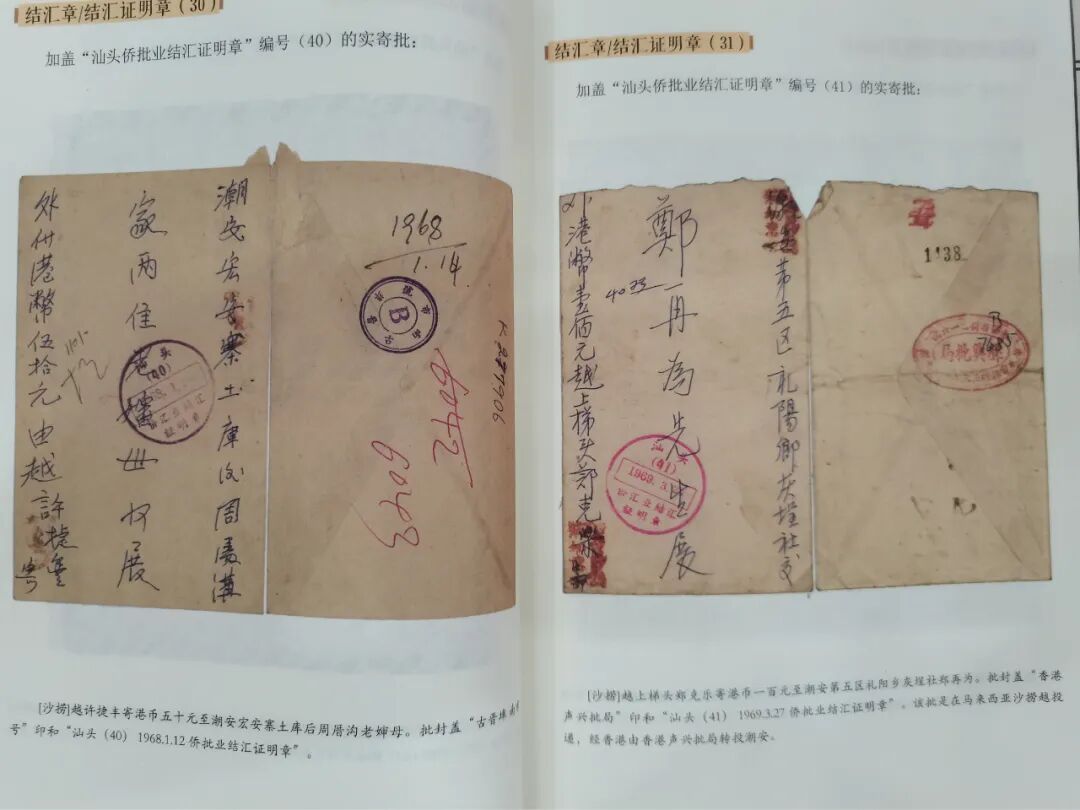 结汇章/结汇证明章（30）
加盖“汕头侨批业结汇证明章”编号（40）的实寄批：
潮安宏安寨土库后周厝溝
家两住老嬸母收展
外付港幣伍拾元由越許捷豐寄
头
（40）
汇业结汇
証明章
1968
1.14
B
6472
6073
[沙捞]越许捷丰寄港币五十元至潮安宏安寨土库后周厝沟老婶母。批封盖“古晋
号”印和“汕头（40） 1968.1.12 侨批业结汇证明章”。
结汇章/结汇证明章（31）
加盖“汕头侨批业结汇证明章”编号（41）的实寄批：
第五区礼陽鄉灰埕社交
鄭再為先生展
4033
外港幣壹佰元越上梯头郑克樂
汕头
（41）
1969.3.
汇业结汇
証明章
1138
B
7685
[沙捞]越上梯头郑克乐寄港币一百元至潮安第五区礼阳乡灰埕社郑再为。批封盖“香港
声兴批局”印和“汕头（41） 1969.3.27 侨批业结汇证明章”。该批是在马来西亚沙捞越投
递，经香港由香港声兴批局转投潮安。